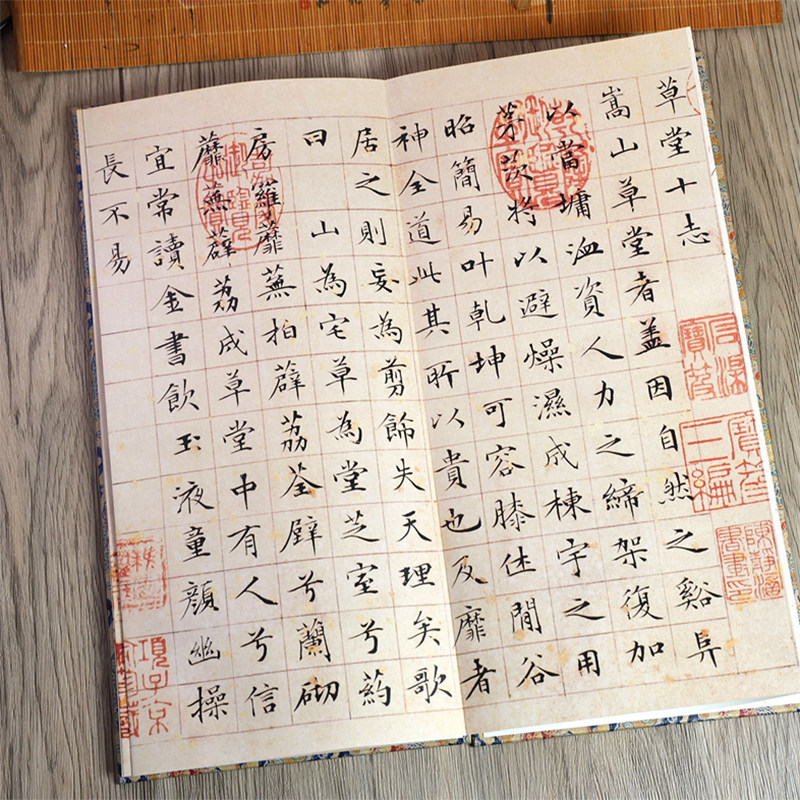 草堂十志
嵩山草堂者盖因自然之谿阜
以當墉洫資人力之締架復加
茅茨将以避燥濕成棟宇之用
昭簡易叶乾坤可容膝休閒谷
神全道此其所以貴也及靡者
居之則妄為剪飾失天理矣歌
曰 山為宅草為堂芝室兮葯
房籮蘼蕪拍薜荔荃壁兮蘭砌
蘼蕪薜荔成草堂中有人兮信
宜常讀金書飲玉液童顔幽操
長不易